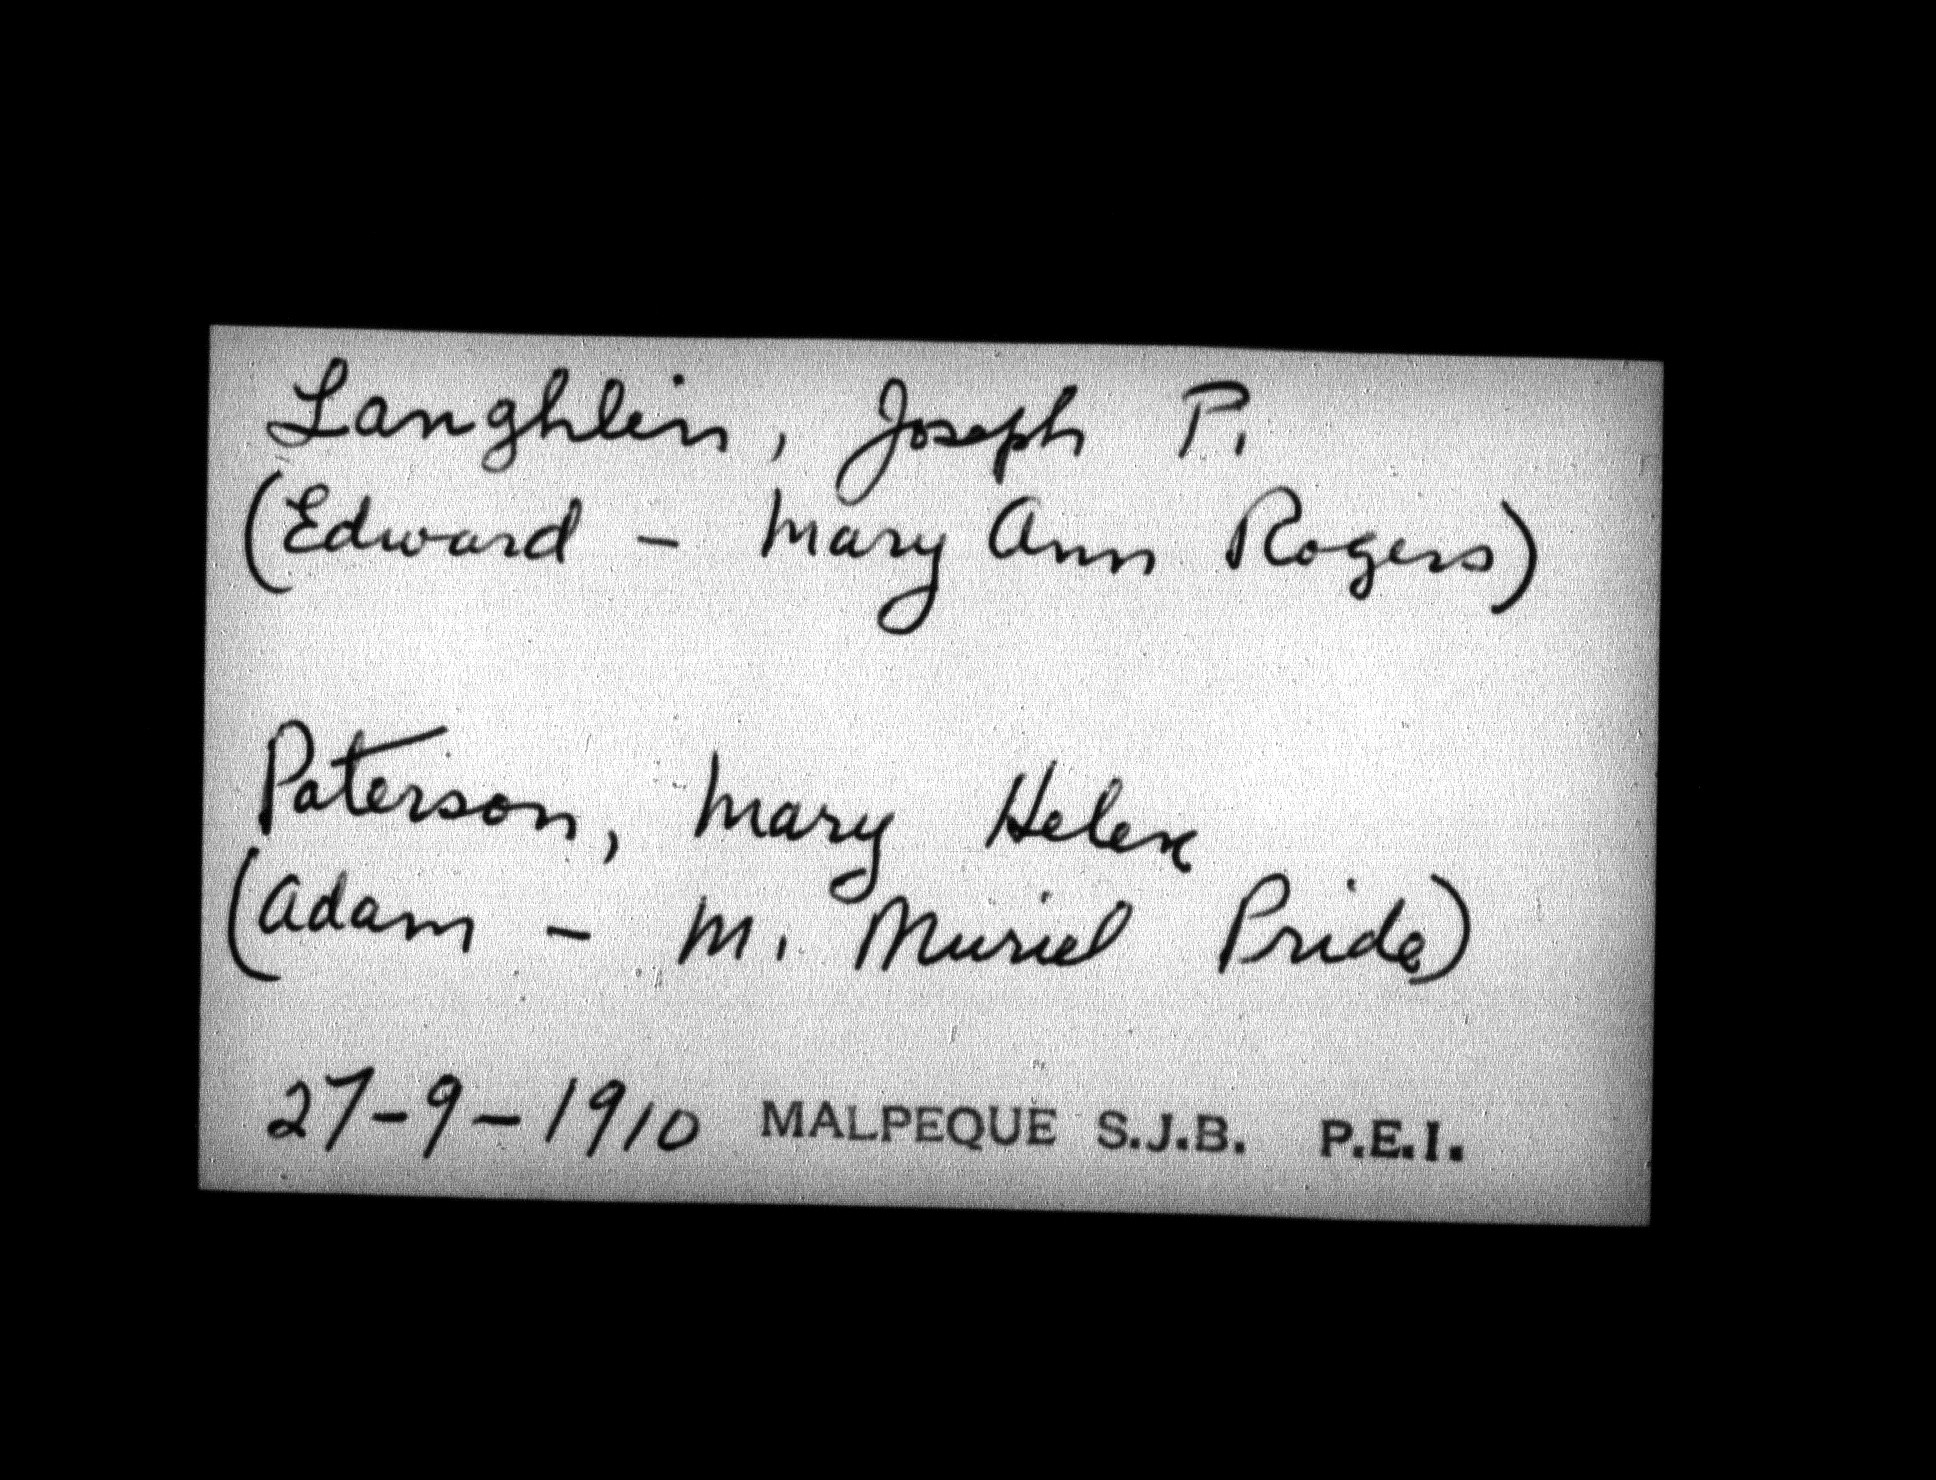 Langhlin, Joseph P.
(Edward - Mary Ann Rogers)
Paterson, Mary Helen
(Adam - M. Muriel Pride)
27-9-1910 MALPEQUE S.J.B. P.E.I.